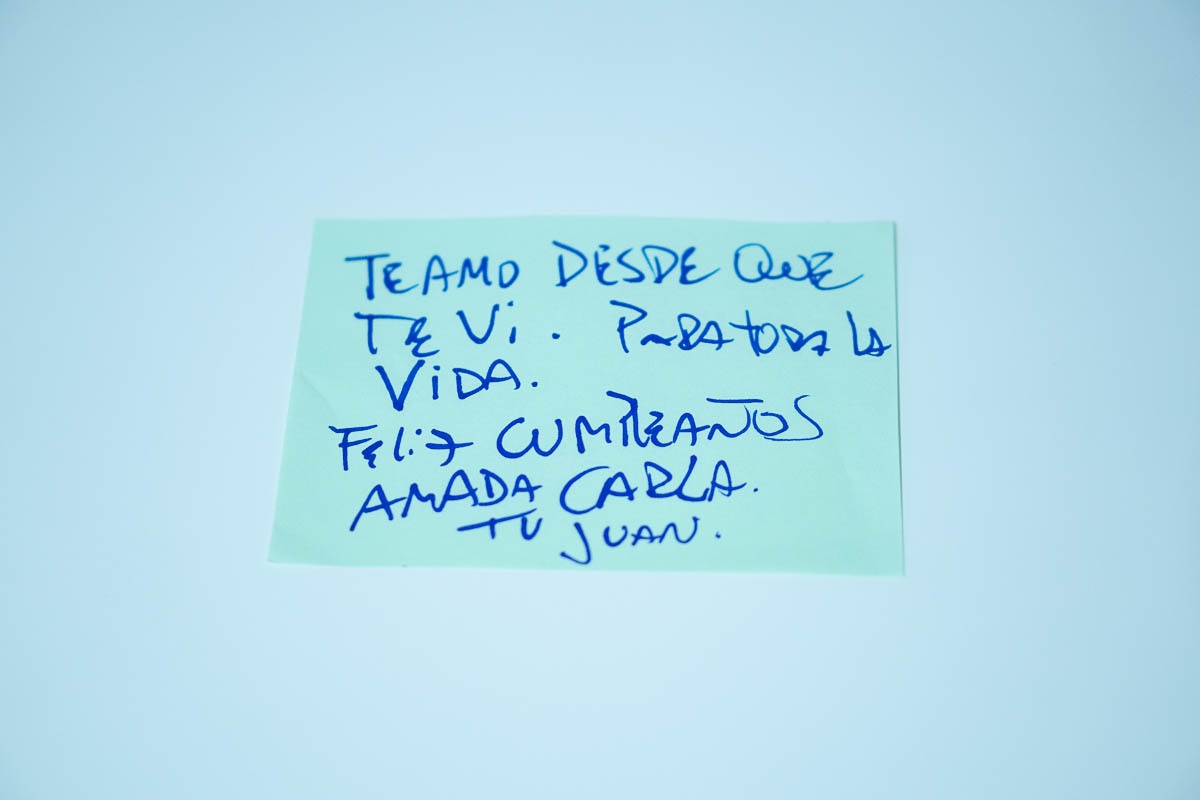 TE AMO DESDE QUE
TE Vi. PARA TODA LA
ViDA.
FELiZ CUMPLEAÑOS
AMADA CARLA.
TU JUAN.